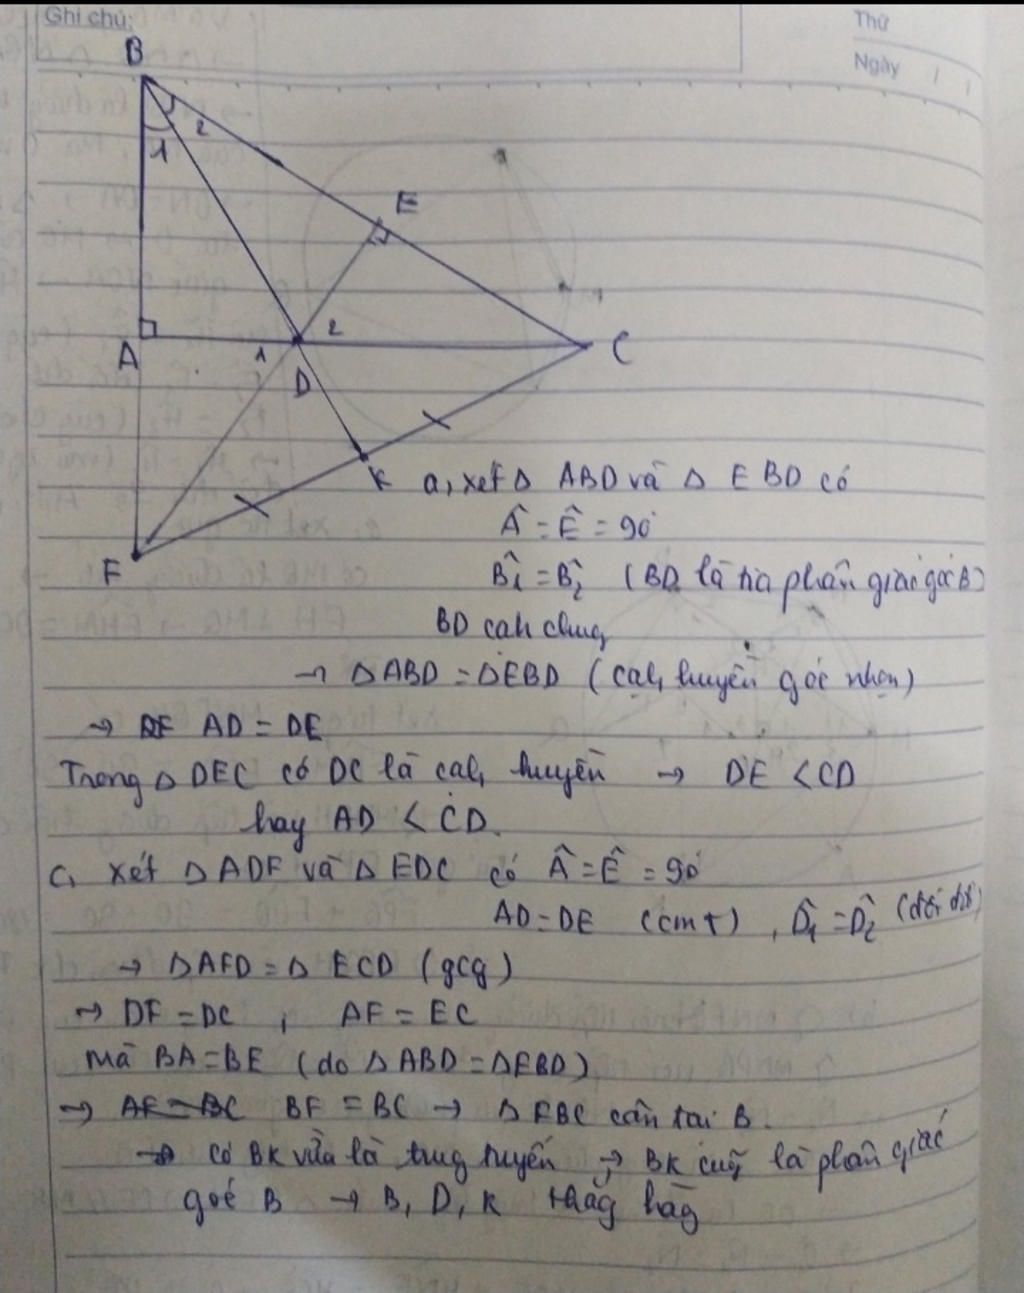 Ghi chú:
Thứ
Ngày / /
B
1 2
E
A 1 2 C
D
K
F
a, xét Δ ABD và Δ EBD có
Â = Ê = 90°
B̂1 = B̂2 (BD là tia phân giác góc B)
BD cạh chug
→ ΔABD = ΔEBD (cạh huyền góc nhọn)
→ AD = DE
Trong Δ DEC có DC là cạh huyền → DE < CD
hay AD < CD.
C, xét Δ ADF và Δ EDC có Â = Ê = 90°
AD = DE (cmt) , D̂1 = D̂2 (đối đỉ)
→ ΔAFD = Δ ECD (gcg)
→ DF = DC , AF = EC
mà BA = BE (do Δ ABD = ΔEBD)
→ AF = BC BF = BC → Δ FBC cân tại B.
→ có BK vừa là trug tuyến → BK cũg là phân giác
goé B → B, D, K thẳg hàg